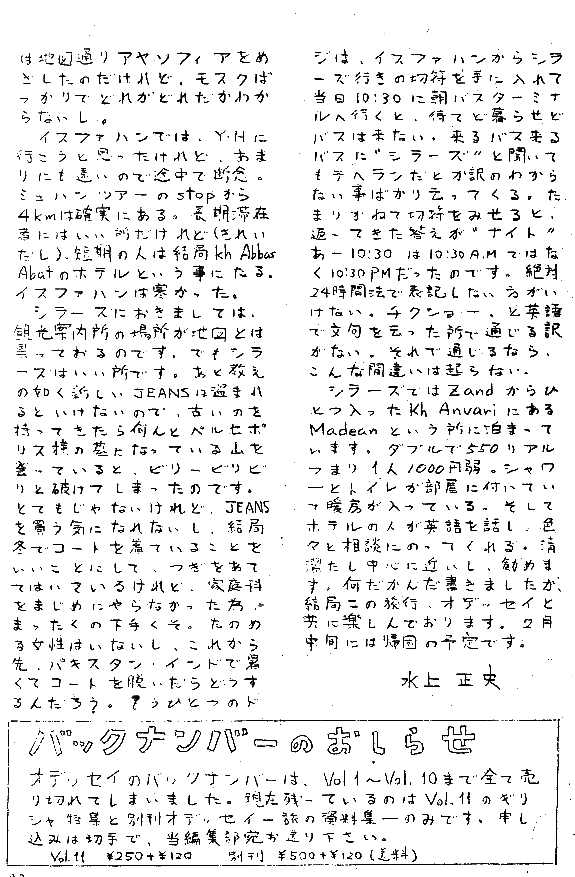 は地図通りアヤソフィアをめ
ざしたのだけれど、モスクば
っかりでどれがどれだかわか
らないし。
イスファハンでは、Y・Hに
行こうと思ったけれど、あま
りにも遠いので途中で断念。
ミュハンツアーのstopから
4kmは確実にある。長期滞在
者にはいい所だけれど(きれい
だし)、短期の人は結局Kh Abbas
Abatのホテルという事になる。
イスファハンは寒かった。
シラーズにおきましては、
観光案内所の場所が地図とは
異っておるのです。でもシラ
ーズはいい所です。あと教え
の如く新しいJEANSは盗まれ
るといけないので、古いのを
持ってきたら何んとペルセポ
リス横の墓になっている山を
登っていると、ビリービリビ
リと破けてしまったのです。
とてもじゃないけれど、JEANS
を買う気になれないし、結局
冬でコートを着ていることを
いいことにして、つぎをあて
てはいているけれど、家庭科
をまじめにやらなかった為。
まったくの下手くそ。たのめ
る女性はいないし、これから
先、パキスタン・インドで暑
くてコートを脱いだらどうす
るんだろう。もうひとつのド
ジは、イスファハンからシラ
ーズ行きの切符を手に入れて
当日10:30に朝バスターミナ
ルへ行くと、待てど暮らせど
バスは来ない。来るバス来る
バスに"シラーズ"と聞いて
もテヘランだとか訳のわから
ない事ばかり云ってくる。た
まりかねて切符をみせると、
返ってきた答えが"ナイト"
あー10:30は10:30A.Mではな
く10:30PMだったのです。絶対
24時間法で表記しない方がい
けない。チクショー、と英語
で文句を云った所で通じる訳
がない。それで通じるなら、
こんな間違いは起らない。
シラーズではZandからひ
とつ入ったKh Anvariにある
Madeanという所に泊まって
います。ダブルで550リアル
つまり1人1000円弱。シャワ
ーとトイレが部屋に付いてい
て暖房が入っている。そして
ホテルの人が英語を話し、色
々と相談にのってくれる。清
潔だし中心に近いし、勧めま
す。何だかんだ書きましたが、
結局この旅行、オデッセイと
共に楽しんでおります。2月
中旬には帰国の予定です。
水上 正史
バックナンバーのおしらせ
オデッセイのバックナンバーは、Vol.1〜Vol.10まで全て売
り切れてしまいました。現在残っているのはVol.11のギリ
シャ特集と別刊オデッセイー旅の資料集ーのみです。申し
込みは切手で、当編集部宛お送り下さい。
Vol.11 ¥250+¥120 別刊 ¥500+¥120(送料)